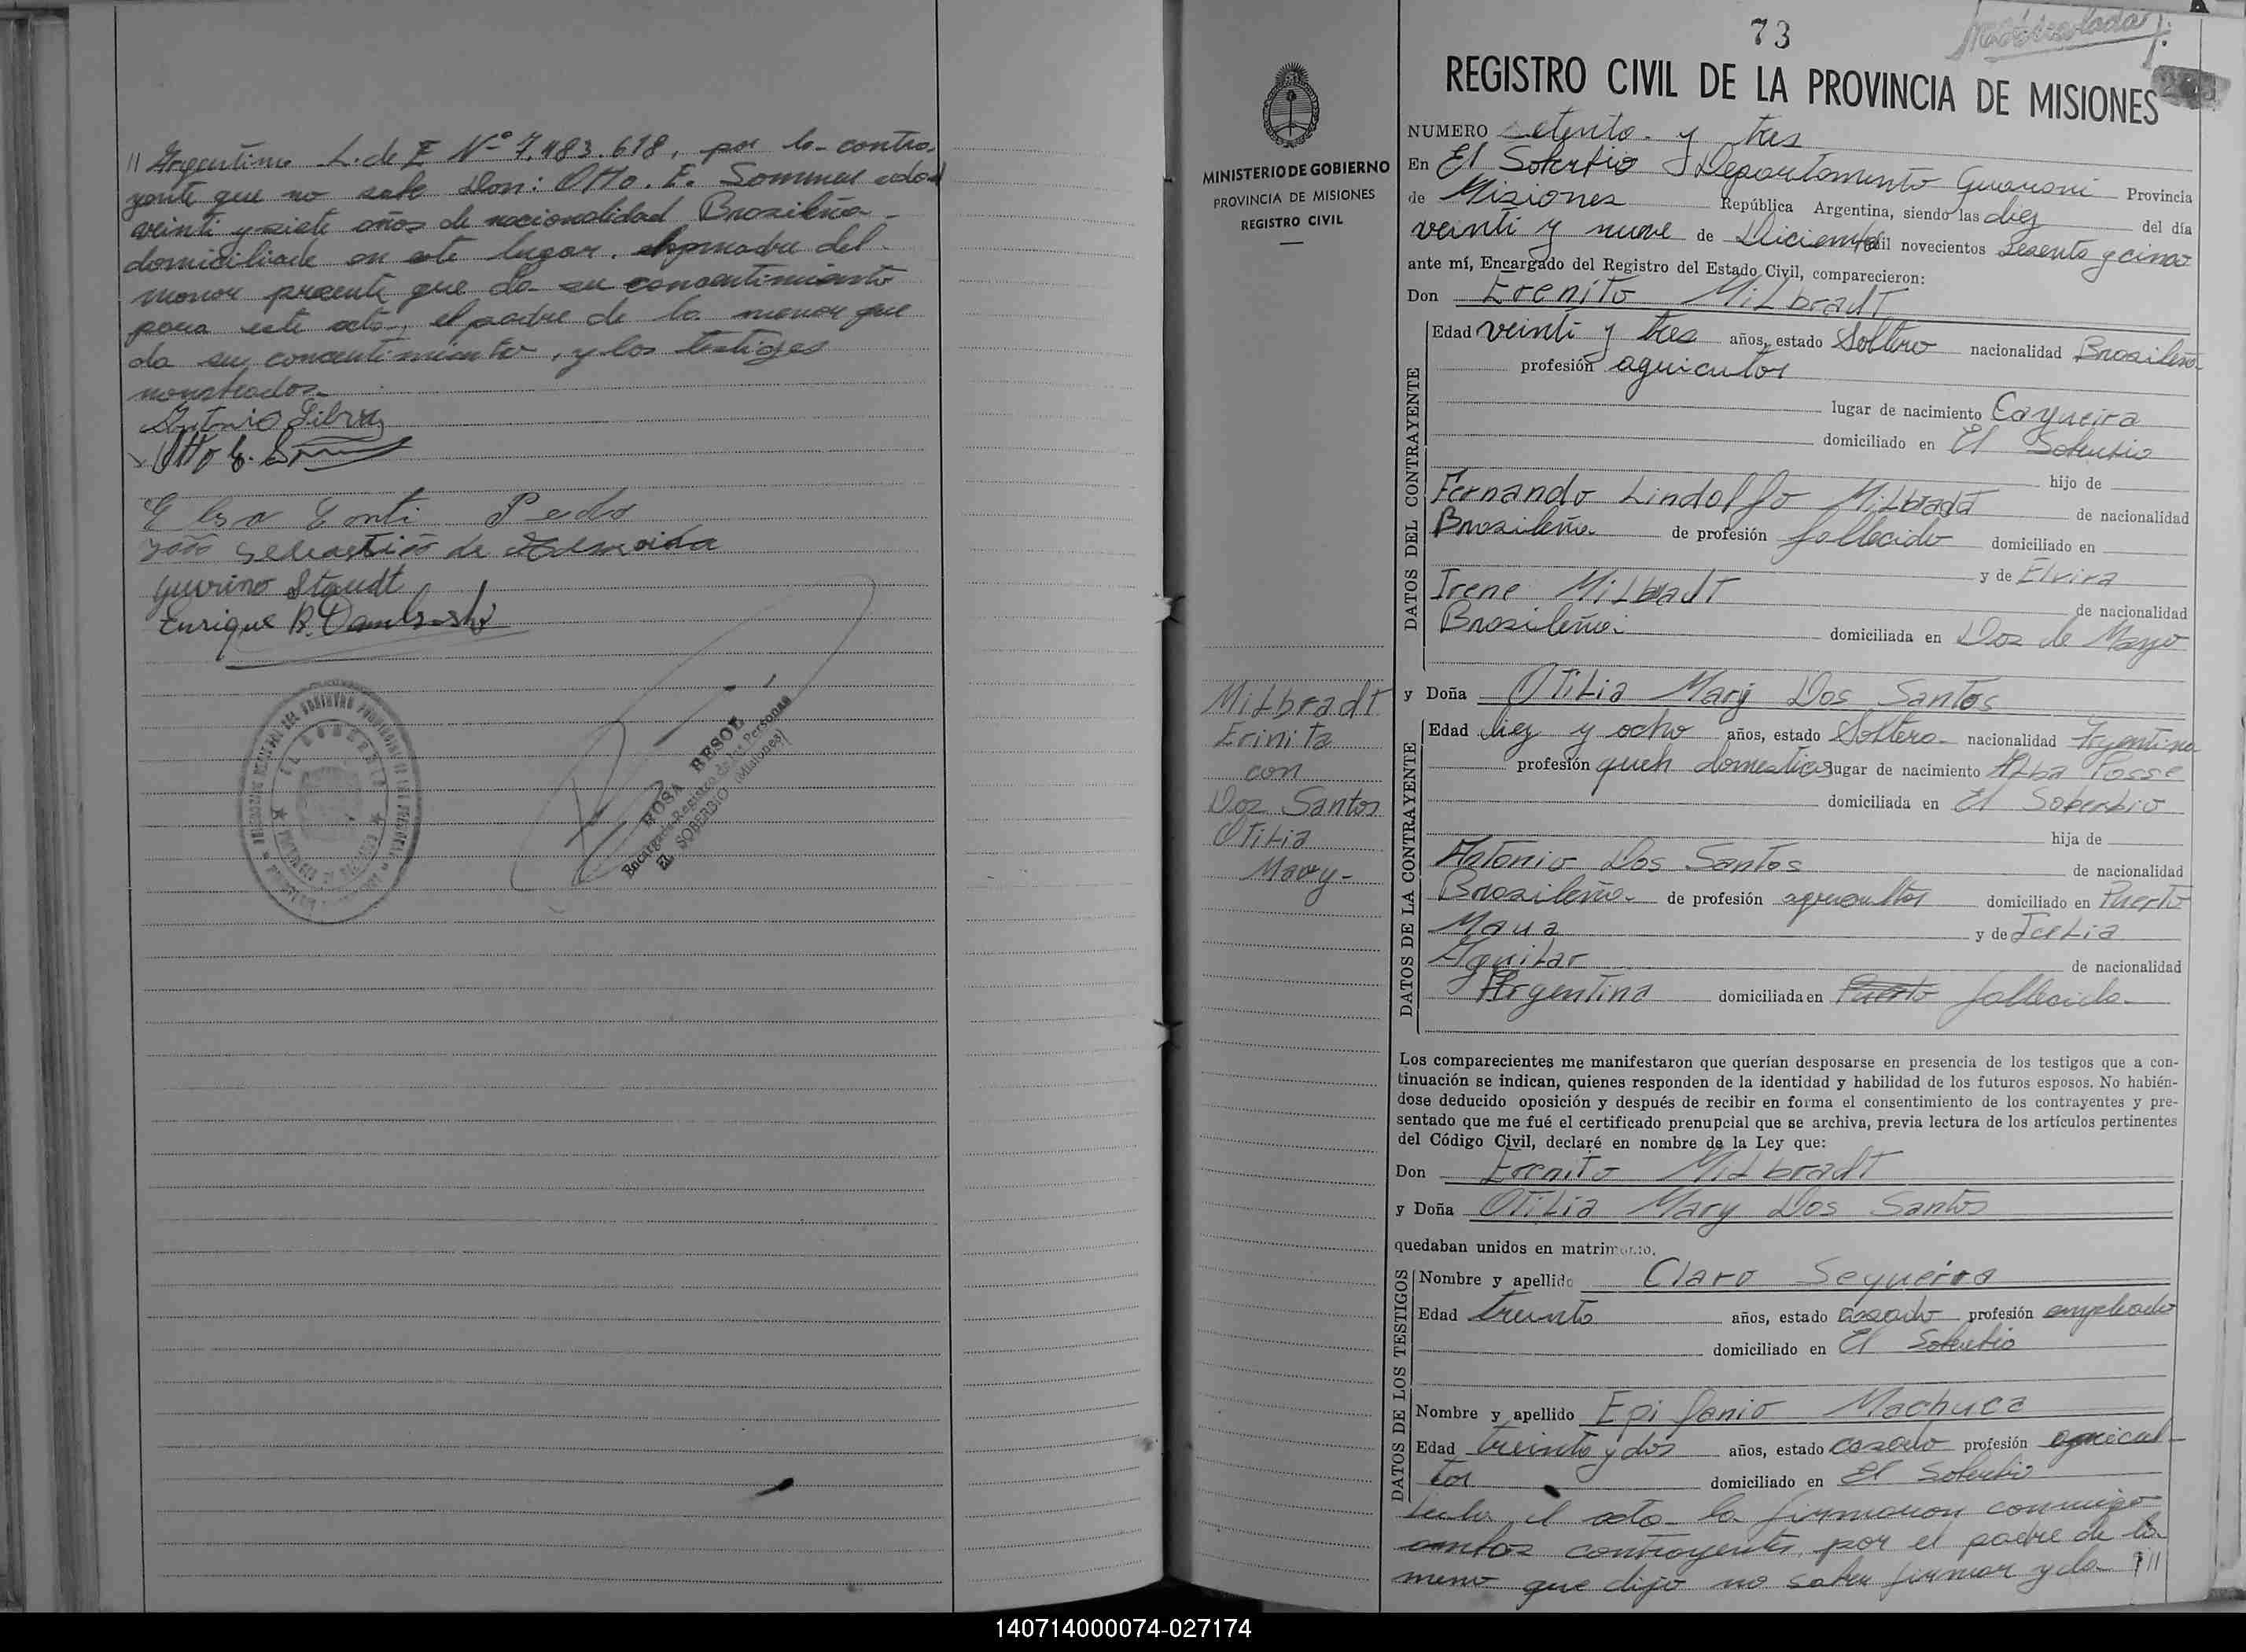 // Argentino L. de E Nº 7.483.618, por la contra-
yente que no sabe Don: Otto. E. Sommer edad
veinti y siete años de nacionalidad Brasileña
domiciliado en este lugar. la madre del
menor presente que da su consentimiento
para este acto, el padre de la menor que
da su concentimiento, y los testigos
nonbrados.
Antonio Silva
Otto E.
Elsa Conti Pedo
João Sebastião de Almeida
Guvrino Staudt
Enrique R.
ROSA BESOL
Encargada Registro de las Personas
EL SOBERBIO (Misiones)
73
Matriculada
REGISTRO CIVIL DE LA PROVINCIA DE MISIONES
MINISTERIO DE GOBIERNO
PROVINCIA DE MISIONES
REGISTRO CIVIL
NUMERO setenta y tres
En El Soberbio Departamento Guarani Provincia
de Misiones República Argentina, siendo las diez del día
veinti y nueve de Diciembre mil novecientos sesenta y cinco
ante mí, Encargado del Registro del Estado Civil, comparecieron:
Don Erenito Milbradt
DATOS DEL CONTRAYENTE
Edad veinti y tres años, estado Soltero nacionalidad Brasileño
profesión aguicutor
lugar de nacimiento
domiciliado en El Soberbio
hijo de
Fernando Lindolfo Milbradt de nacionalidad
Brasileño de profesión fallecido domiciliado en
y de Elvira
Irene Milbradt de nacionalidad
Brasileño. domiciliada en Dos de Mayo
Milbradt
Erinita
con
Dos Santos
Otilia
Mary-
y Doña Otilia Mary Dos Santos
DATOS DE LA CONTRAYENTE
Edad diez y ocho años, estado Soltera nacionalidad Argentina
profesión queh domesticos lugar de nacimiento Alba Posse
domiciliada en El Soberbio
hija de
Antonio Dos Santos de nacionalidad
Brasileño de profesión agricultor domiciliado en Puerto
Maua y de
Aguilar de nacionalidad
Argentina domiciliada en Puerto fallecida
Los comparecientes me manifestaron que querían desposarse en presencia de los testigos que a con-
tinuación se indican, quienes responden de la identidad y habilidad de los futuros esposos. No habién-
dose deducido oposición y después de recibir en forma el consentimiento de los contrayentes y pre-
sentado que me fué el certificado prenupcial que se archiva, previa lectura de los artículos pertinentes
del Código Civil, declaré en nombre de la Ley que:
Don Erenito Milbradt
y Doña Otilia Mary Dos Santos
quedaban unidos en matrimonio.
DATOS DE LOS TESTIGOS
Nombre y apellido Claro Sequeira
Edad treinta años, estado casado profesión empleado
domiciliado en El Soberbio
Nombre y apellido Epifanio Machuca
Edad treinta y dos años, estado casado profesión agricul-
tor domiciliado en El Soberbio
Leida el acta la firmaron conmigo
ambos contrayentes por el padre de la
menor que dijo no saber firmar y da ///
140714000074-027174